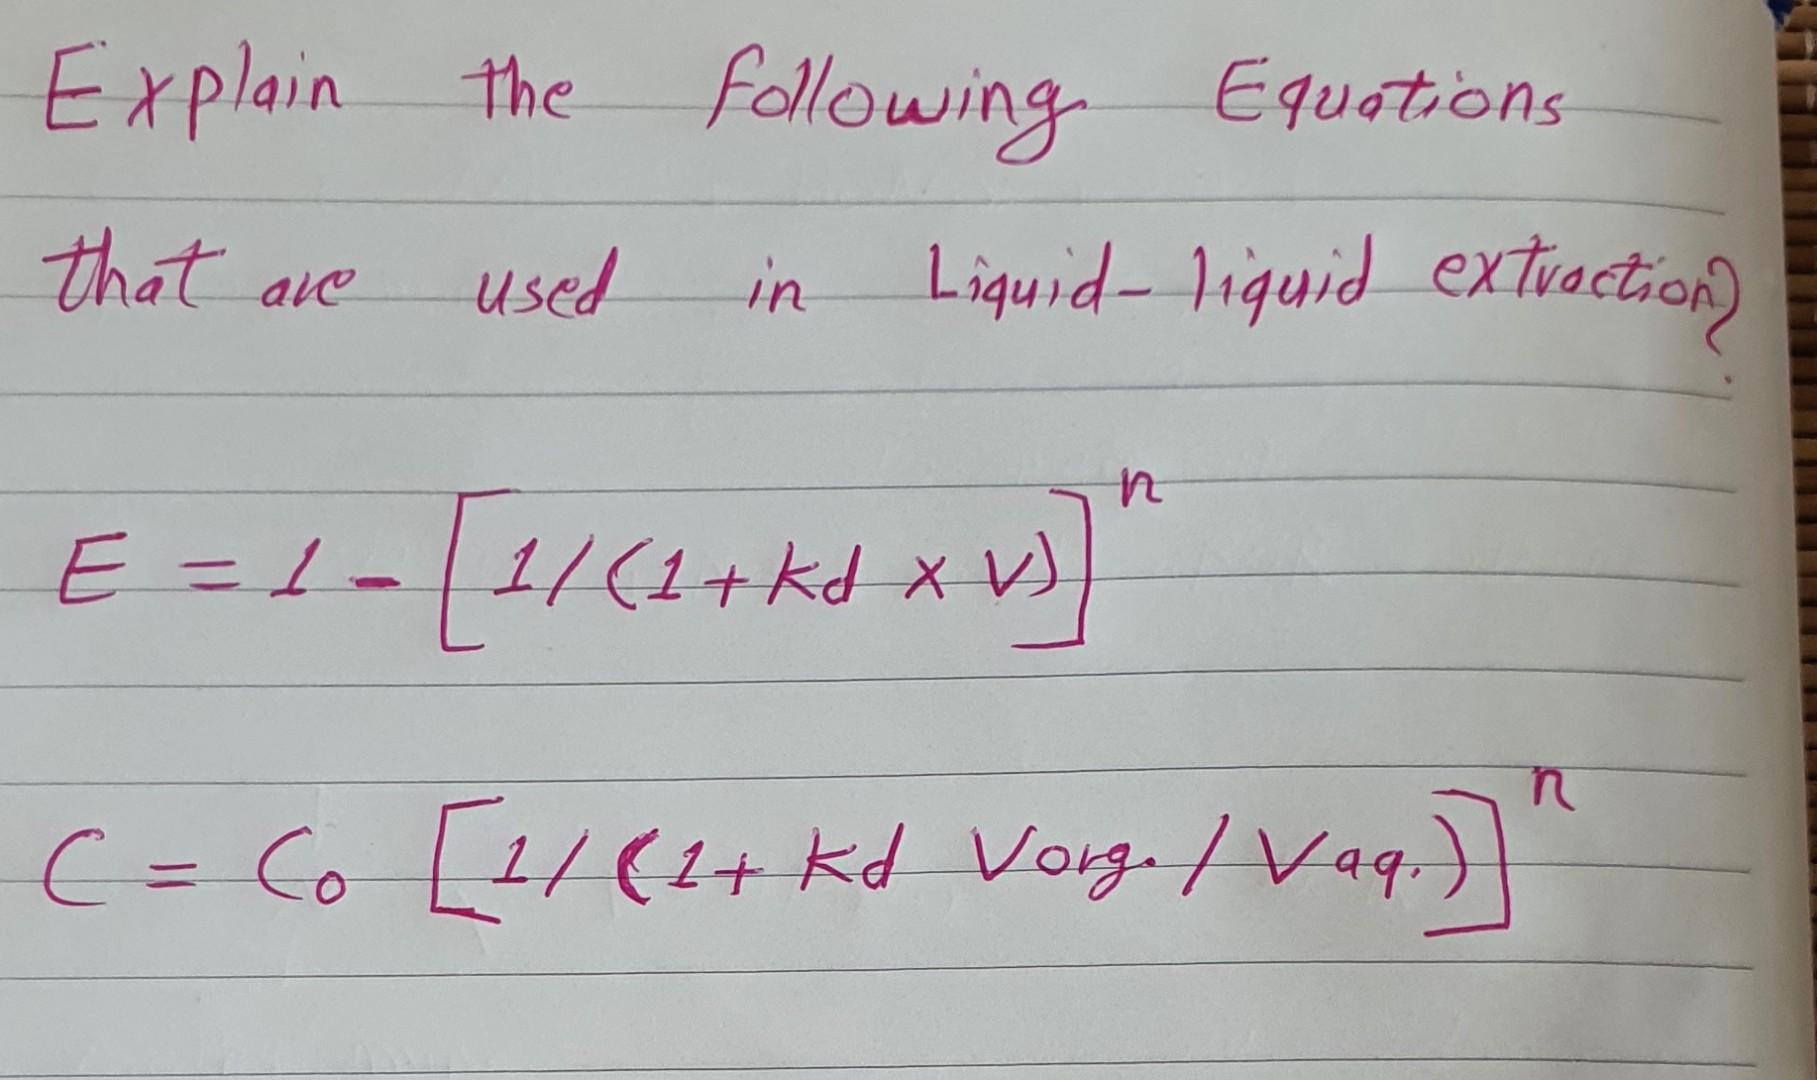 Explain the following Equations
that are used in Liquid-liquid extraction?
E = 1 - [1/(1+kd x V)]ⁿ
C = C₀ [1/(1+ kd Vorg. / Vaq.)]ⁿ